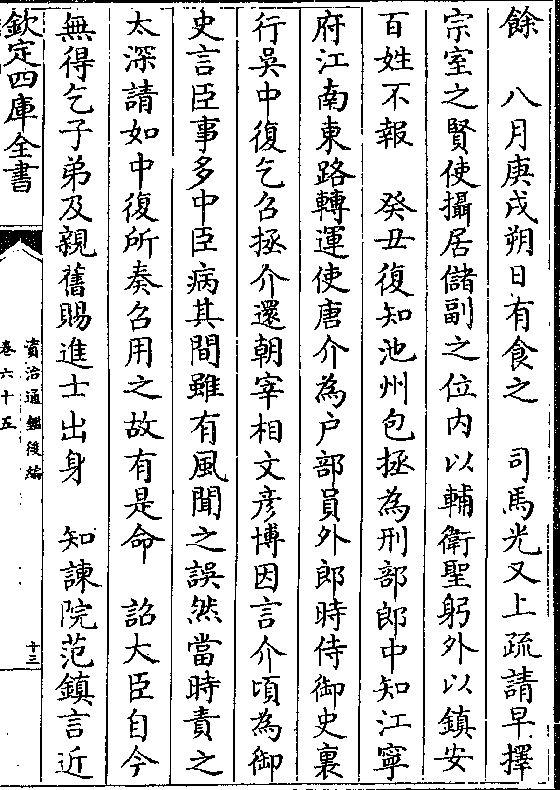 餘　八月庚戌朔日有食之　司馬光又上疏請早擇
宗室之賢使攝居儲副之位内以輔衛聖躬外以鎮安
百姓不報　癸丑復知池州包拯為刑部郎中知江寧
府江南東路轉運使唐介為户部員外郎時侍御史裏
行吳中復乞召拯介還朝宰相文彦博因言介頃為御
史言臣事多中臣病其間雖有風聞之誤然當時責之
太深請如中復所奏召用之故有是命　詔大臣自今
無得乞子弟及親舊賜進士出身　知諫院范鎮言近
欽定四庫全書
資治通鑑後編
卷六十五
十三